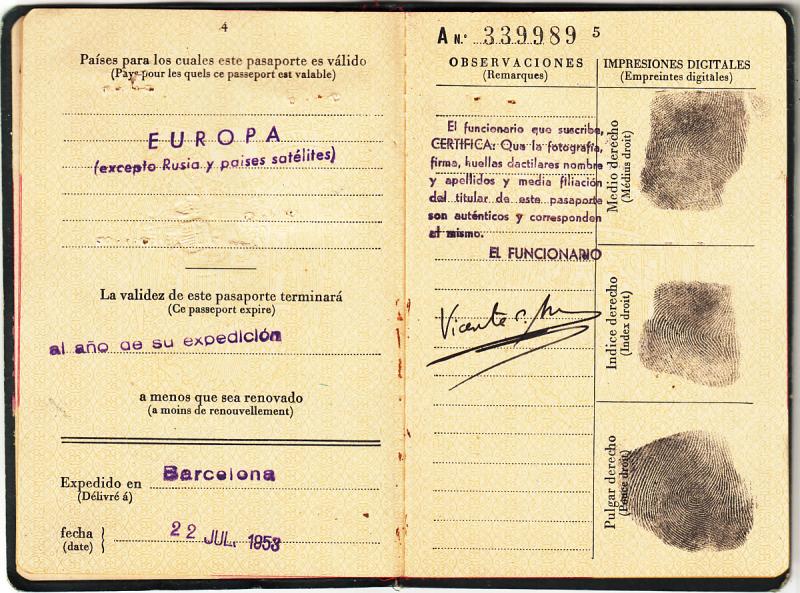 4
Países para los cuales este pasaporte es válido
(Pays pour les quels ce passeport est valable)
EUROPA
(excepto Rusia y paises satélites)
La validez de este pasaporte terminará
(Ce passeport expire)
al año de su expedición
a menos que sea renovado
(a moins de renouvellement)
Expedido en Barcelona
(Délivré á)
fecha 22 JUL. 1953
(date)
A N.º 339989 5
OBSERVACIONES
(Remarques)
El funcionario que suscribe,
CERTIFICA: Que la fotografía,
firma, huellas dactilares nombre
y apellidos y media filiación
del titular de este pasaporte
son auténticos y corresponden
al mismo.
EL FUNCIONARIO
Vicente
IMPRESIONES DIGITALES
(Empreintes digitàles)
Medio derecho
(Médius droit)
Indice derecho
(Index droit)
Pulgar derecho
(Pouce droit)